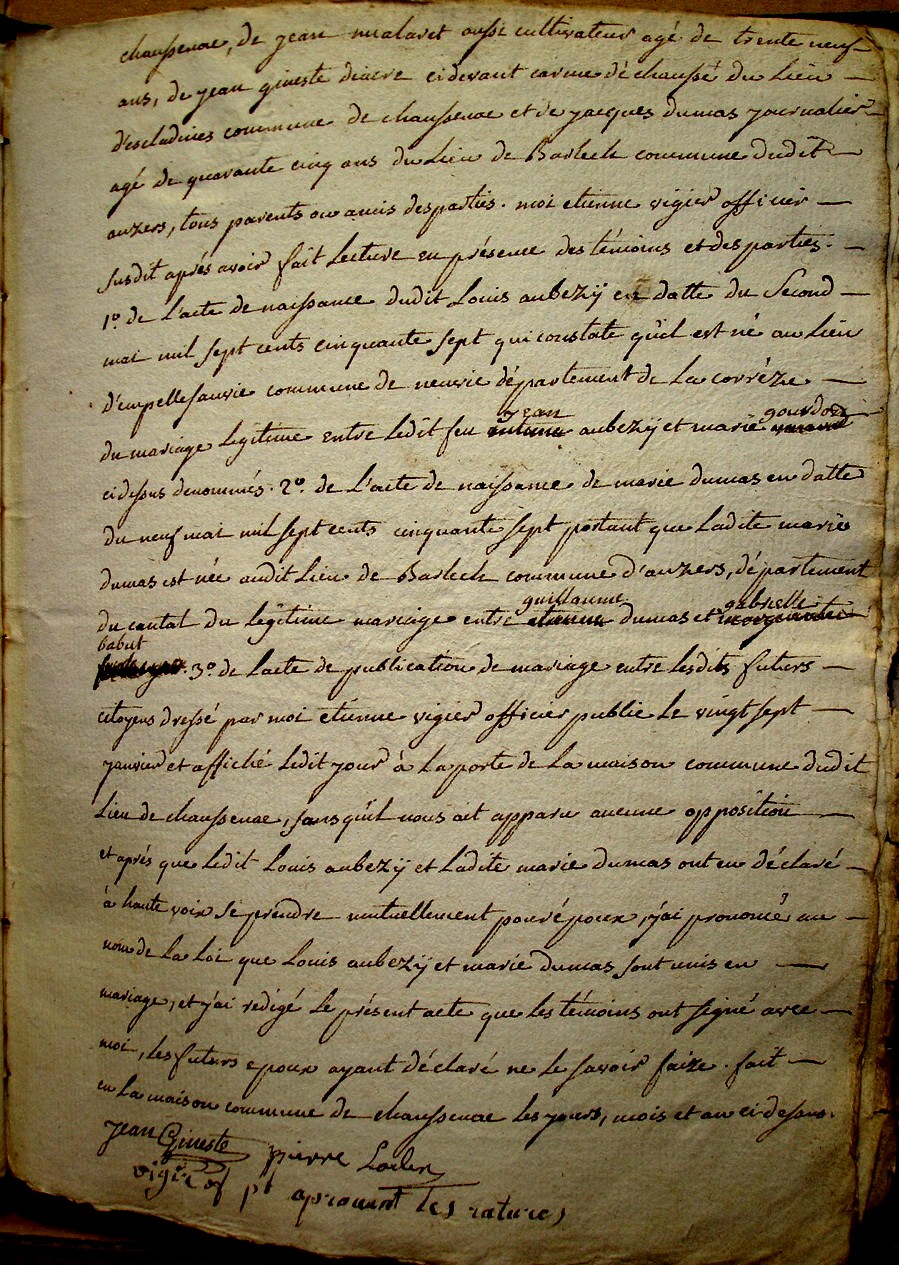 chaussenac, de jean malaret aussi cultivateur agé de trente neuf
ans, de jean gineste diacre cidevant carme déchaussé du Lieu
d'escladines commune de chaussenac et de jacques dumas journalier
agé de quarante cinq ans du Lieu de Barlech commune dudit
auzers, tous parents ou amis desparties. moi etienne vigier officier
susdit aprés avoir fait Lecture en présence des témoins et des parties.
1º. de L'acte de naissance dudit Louis aubezÿ en datte du Second
mai mil sept cents cinquante sept qui constate qu'il est né au Lieu
d'empellesauvie commune de neuvic département de La corrèze
du mariage Legitime entre Ledit feu jean aubezÿ et marie gourdon
cidessus denommés. 2º. de L'acte de naissance de marie dumas en datte
du neuf mai mil sept cents cinquante sept portant que Ladite marie
dumas est née audit Lieu de Barlech commune d'auzers, département
du cantal du Légitime mariage entre guillaume dumas et gabrielle
babut 3º. de L'acte de publication de mariage entre Lesdits futurs
citoyens dressé par moi etienne vigier officier public Le vingt sept
janvier et affiché Ledit jour à La porte de La maison commune dudit
Lieu de chaussenac, sans qu'il nous ait apparu aucune opposition
et aprés que Ledit Louis aubezÿ et Ladite marie dumas ont eu déclaré
à haute voix se prendre mutuellement pour époux, j'ai prononcé au
nom de La Loi que Louis aubezÿ et marie dumas sont unis en
mariage, et j'ai redigé Le présent acte que Les témoins ont signé avec
moi, Les futurs epoux ayant déclaré ne Le savoir faire. fait
en La maison commune de chaussenac Les jours, mois et an ci dessus.
jean Gineste pierre
vigier of pb aprouvant les ratures